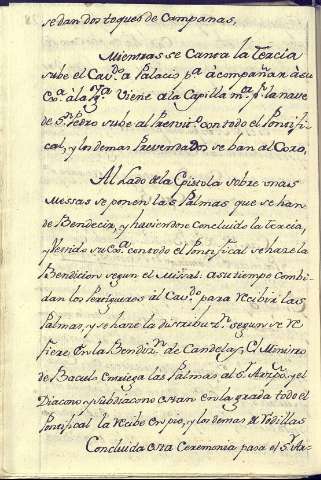 se dan dos toques de Campanas,
Mientras se canta la Tercia
sube el Cav.do a Palacio p.a acompañar à su
Ex.a à la Ygl.a viene a la Capilla m.r p.r la nave
de S.n Pedro sube al Presvit.o con todo el Pontifi-
cal, y los demas Prevendados se bàn al Coro,
Al Lado de la Epistola sobre unas
messas se ponen las Palmas que se han
de Bendecir, y haviendose Concluido la Tercia,
y Vestido su Ex.a con todo el Pontifical se haze la
Bendicion segun el Missal: a su tiempo Combi-
dan los Pertigueros al Cav.do para recibir las
Palmas, y se haze la distribuz.n segun se re-
fiere en la Bendiz.n de Candelas, el Ministro
de Baculo entrega las Palmas al S.r Arzpo. y el
Diacono, y Subdiacono estan en la grada todo el
Pontifical la recibe en pie, y los demas de Rodillas
Concluida esta Ceremonia pasa el S.r Ar-